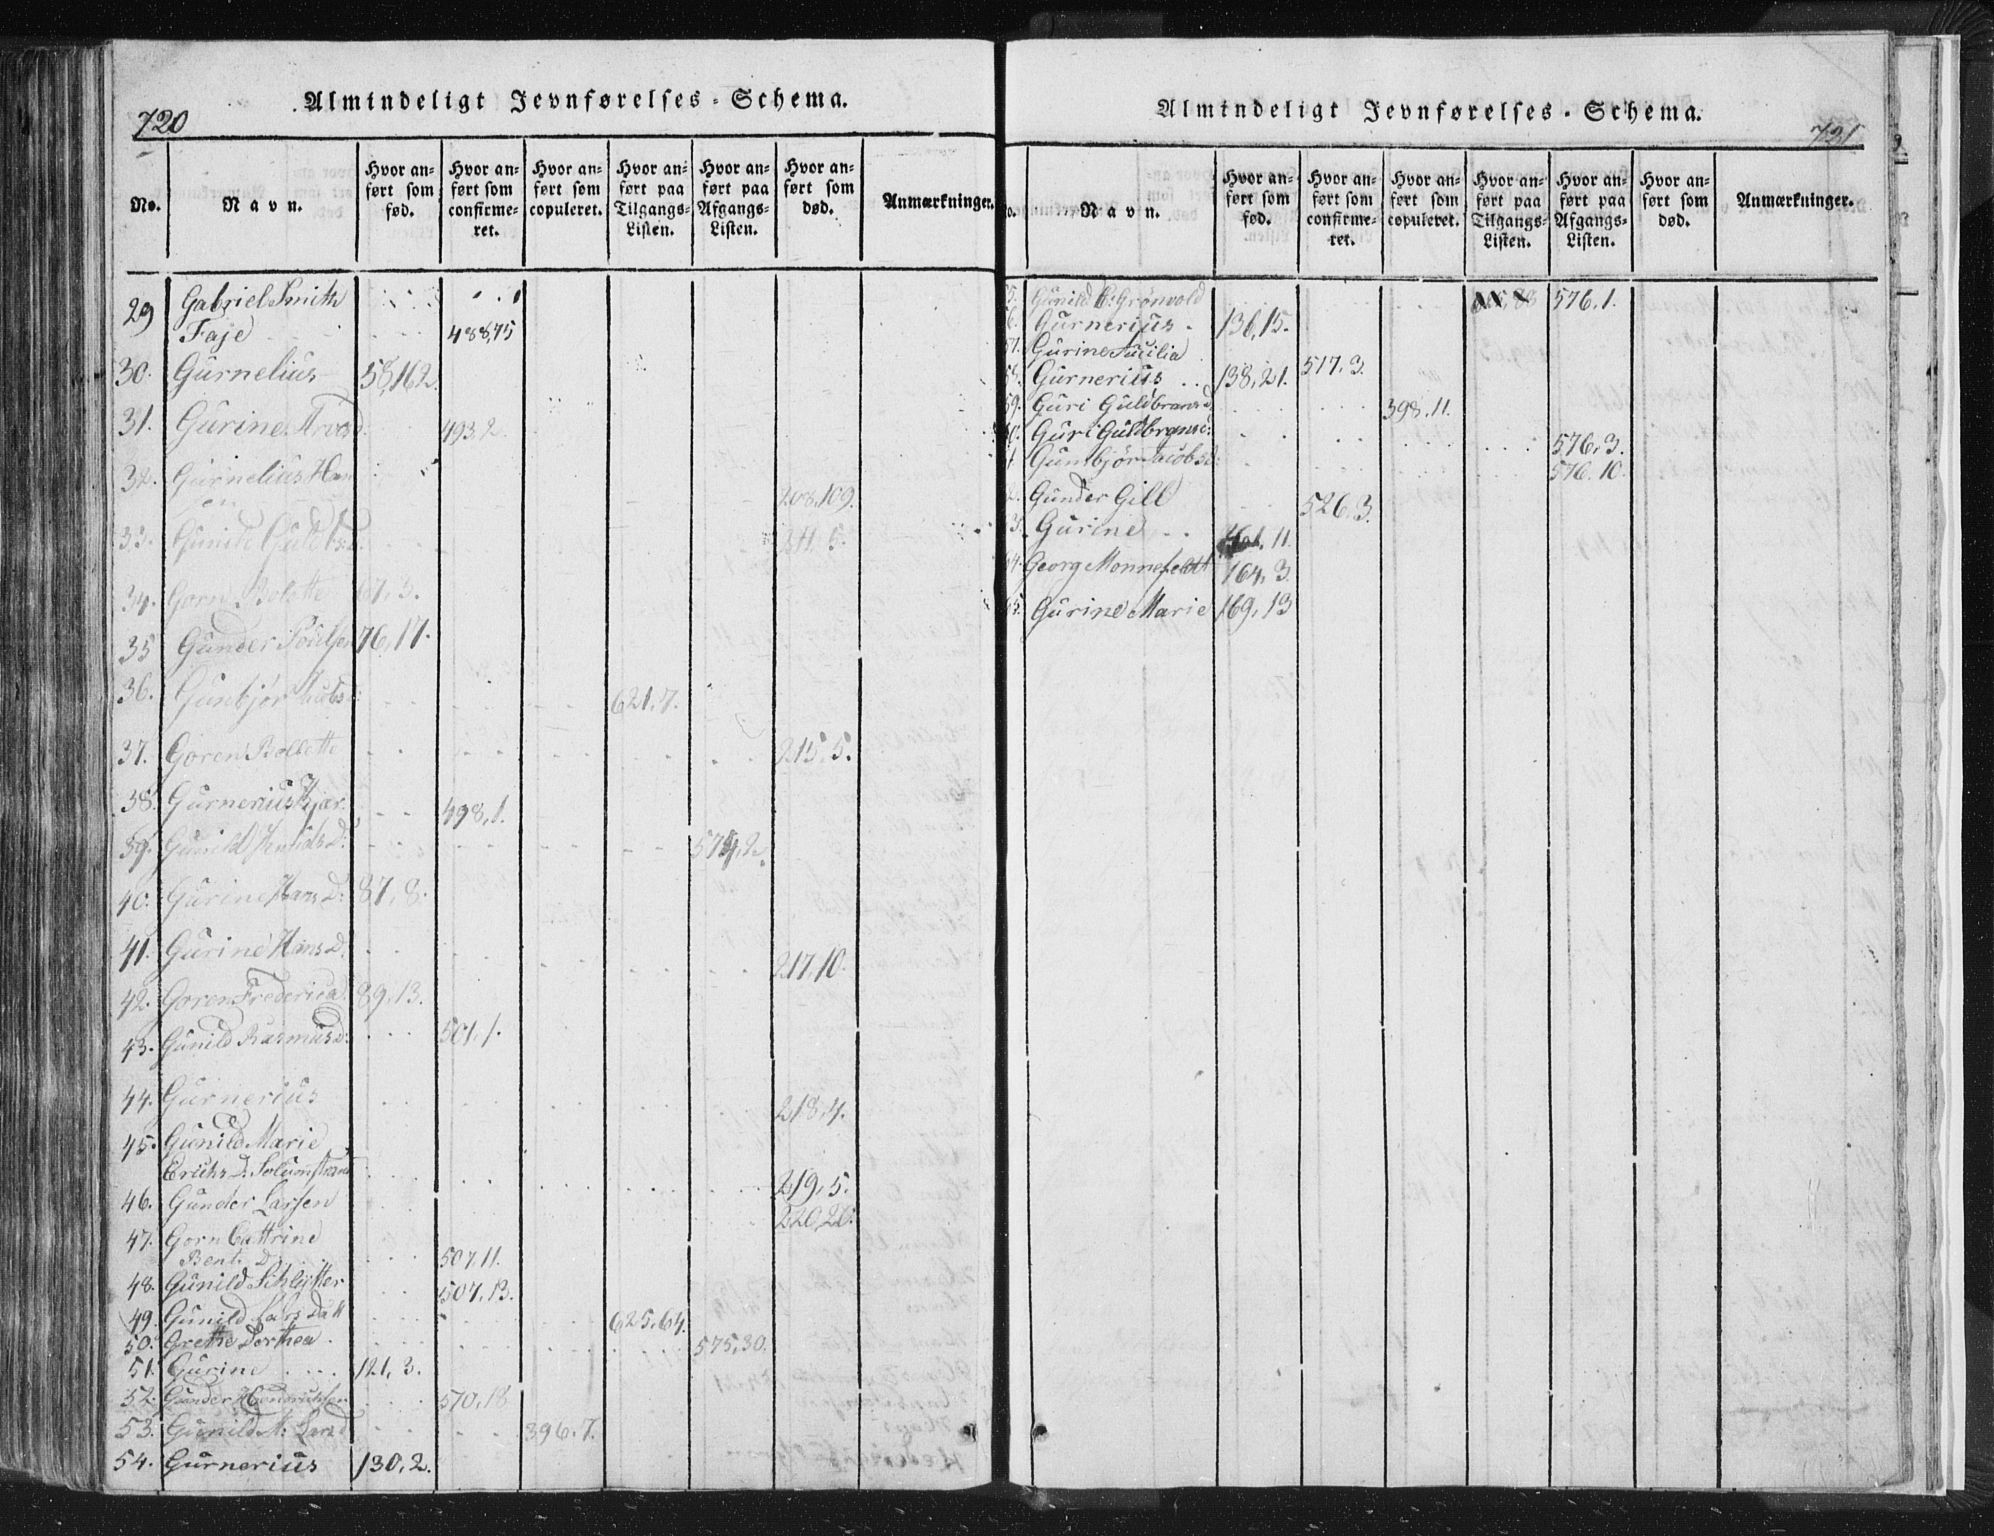 720
Almindeligt Jevnførelses-Schema.
No.
Navn.
Hvor anført som fød.
Hvor anført som confirmeret.
Hvor anført som copuleret.
Hvor anført paa Tilgangs-Listen.
Hvor anført paa Afgangs-Listen.
Hvor anført som død.
Anmærkninger.
29 Gabriel Smith
Faje 488,75
30. Gurnelius 58,162.
31. Gurine 493.2.
32. Gurnelius Han 208,109.
33. Gunild 211. 5.
34. Goren Bolette 67,3.
35 Gunder Poulsen 76,17.
36. Gunbjör Jacobsd: 621,7.
37. Goren Bollette 215,5.
38. Gurnerius Kjær. 498,1.
39. Gunild Knuds D: 574,2.
40. Gurine Hans D: 87,8.
41. Gurine Hans D. 217,10.
42. Goren Frederica 89,13.
43. Gunild Rasmusd: 501,1.
44. Gurnerius 218,4.
45. Gunild Marie
Erichs D. 219,5.
46. Gunder Larsen 220,20.
47. Gorn Cattrine
Bents D. 507,11.
48. Gunild Schlytter 507,13.
49. Gunild Lars Datt 625,64.
50. Grethe Dorthea 575,30.
51. Gurine 121,3.
52. Gunder Hendrichsen 570,18
53. Gunild M: Larsd 396,7.
54. Gurnerius 130,2.
Almindeligt Jevnførelses-Schema.
721
Navn.
Hvor anført som fød.
Hvor anført som confirmeret.
Hvor anført som copuleret.
Hvor anført paa Tilgangs-Listen.
Hvor anført paa Afgangs-Listen.
Hvor anført som død.
Anmærkninger.
Gunild B: Grönvold 576,1.
Gurnerius 136,15.
Gurine 517,3.
Gurnerius 138,21.
59. Guri Guldbransd. 398,11.
Guri Guldbrans: 576,3.
Gunbjör Jacobsd: 576,10.
Gunder Gill 526,3.
Gurine 11.
Georg Monnefeldt 164,3.
Gurine Marie 169,13